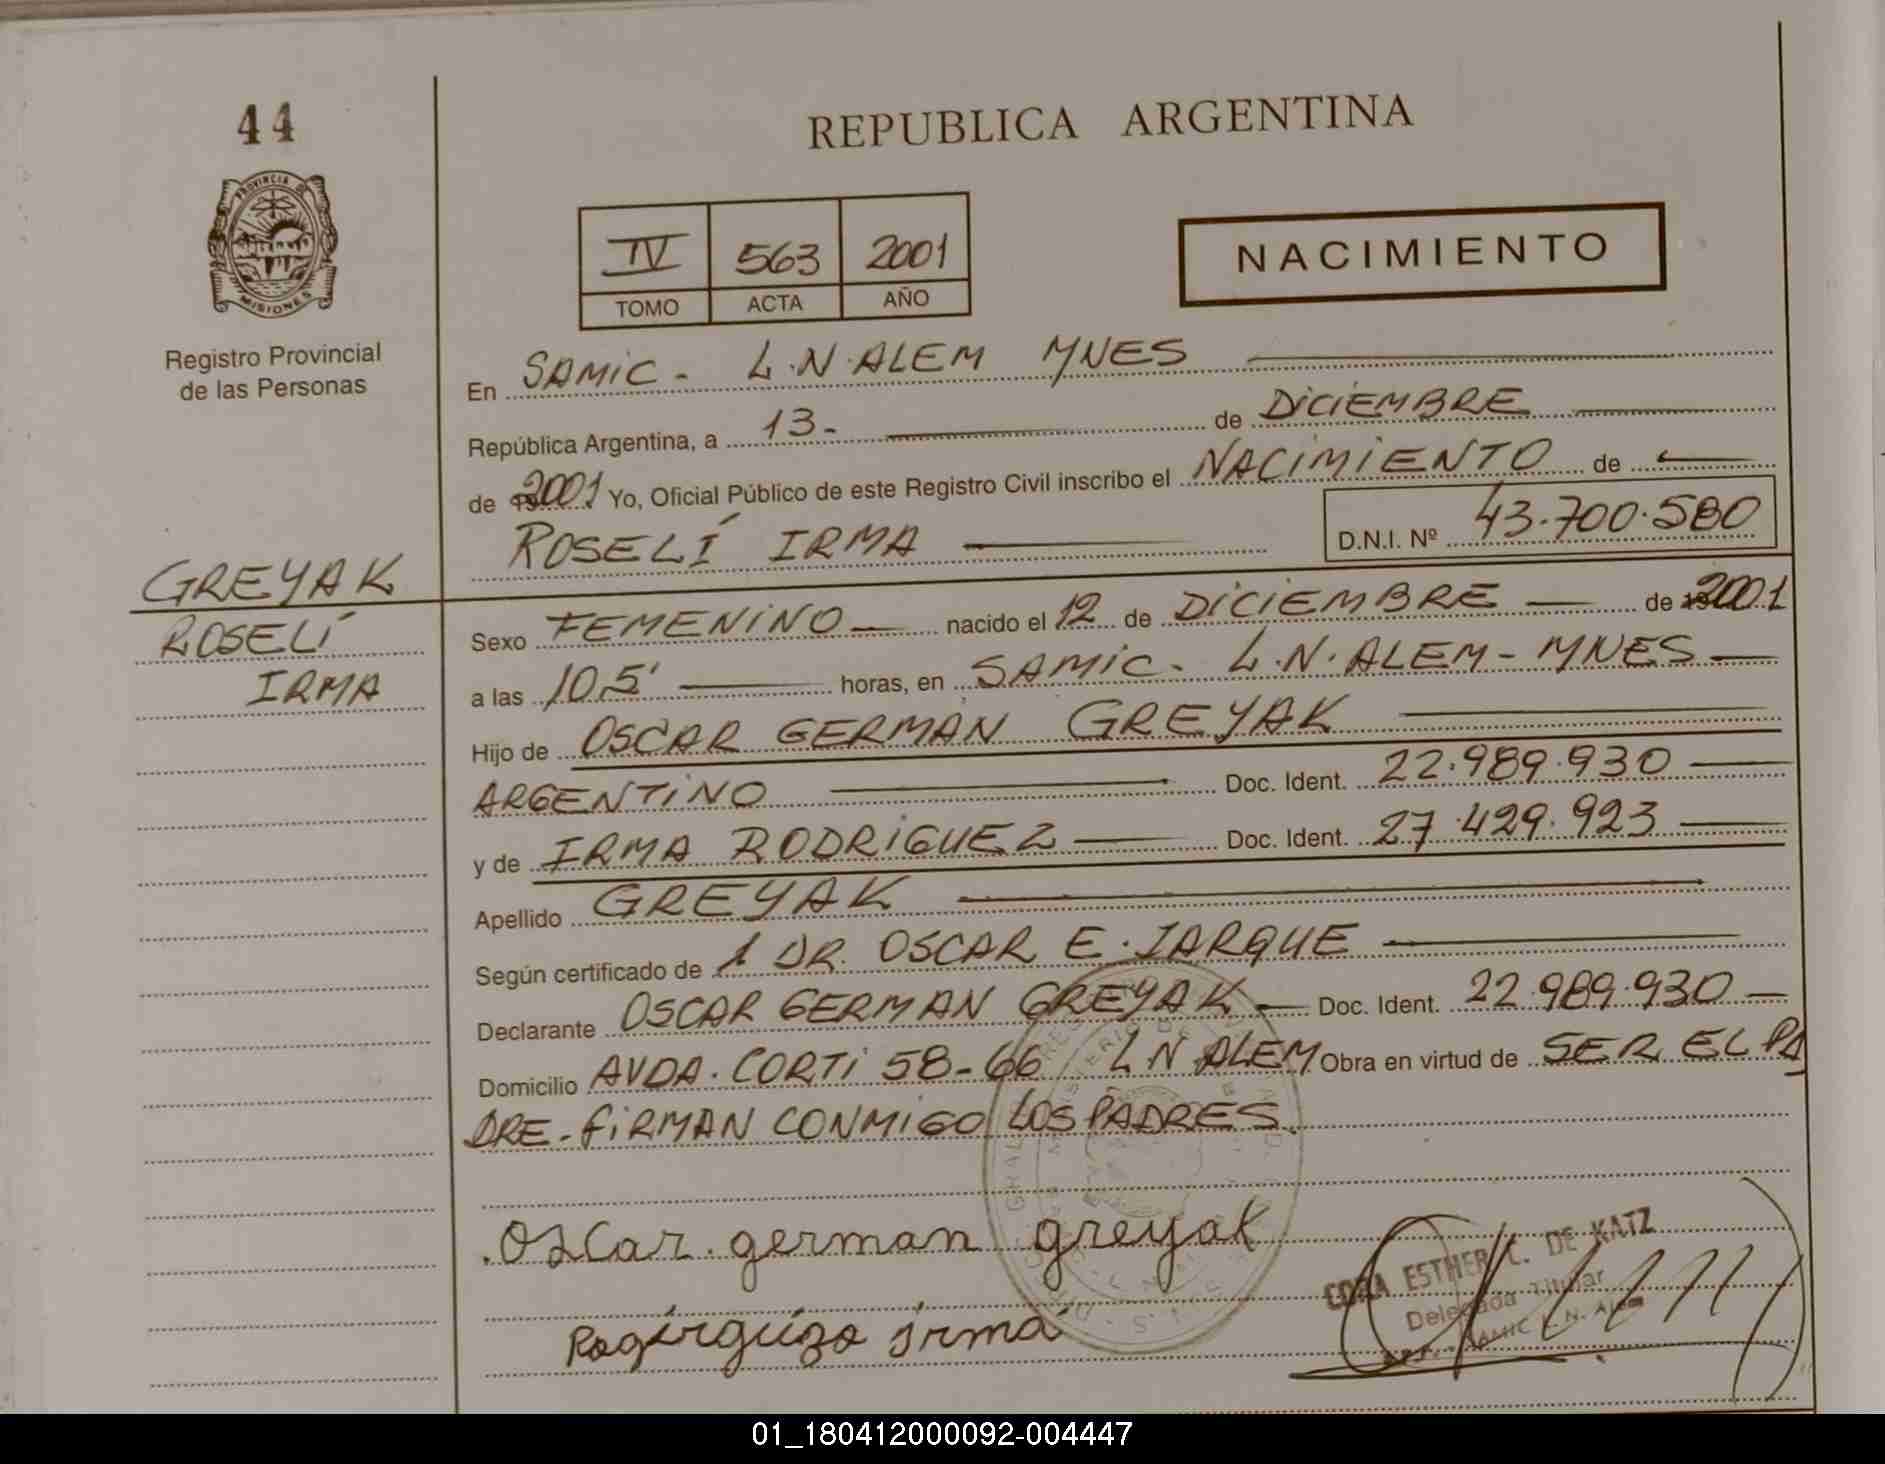 44
PROVINCIA DE
MISIONES
Registro Provincial
de las Personas
REPUBLICA ARGENTINA
IV 563 2001
TOMO ACTA AÑO
NACIMIENTO
En SAMIC - L.N. ALEM MNES
República Argentina, a 13- de DICIEMBRE
de 2001 Yo, Oficial Público de este Registro Civil inscribo el NACIMIENTO de
ROSELÍ IRMA
D.N.I. Nº 43.700.580
GREYAK
ROSELÍ
IRMA
Sexo FEMENINO nacido el 12 de DICIEMBRE de 2001
a las 10,5' horas, en SAMIC - L.N. ALEM - MNES
Hijo de OSCAR GERMAN GREYAK
ARGENTINO Doc. Ident. 22.989.930
y de IRMA RODRIGUEZ Doc. Ident. 27.429.923
Apellido GREYAK
Según certificado de 1 DR. OSCAR E. JARQUE
Declarante OSCAR GERMAN GREYAK Doc. Ident. 22.989.930
Domicilio AVDA. CORTI 58-66 L N ALEM Obra en virtud de SER EL PA
DRE - FIRMAN CONMIGO LOS PADRES.
Oscar german greyak
irma
CORA ESTHER C. DE KATZ
Delegada Titular
SAMIC L. N. Alem
01_180412000092-004447